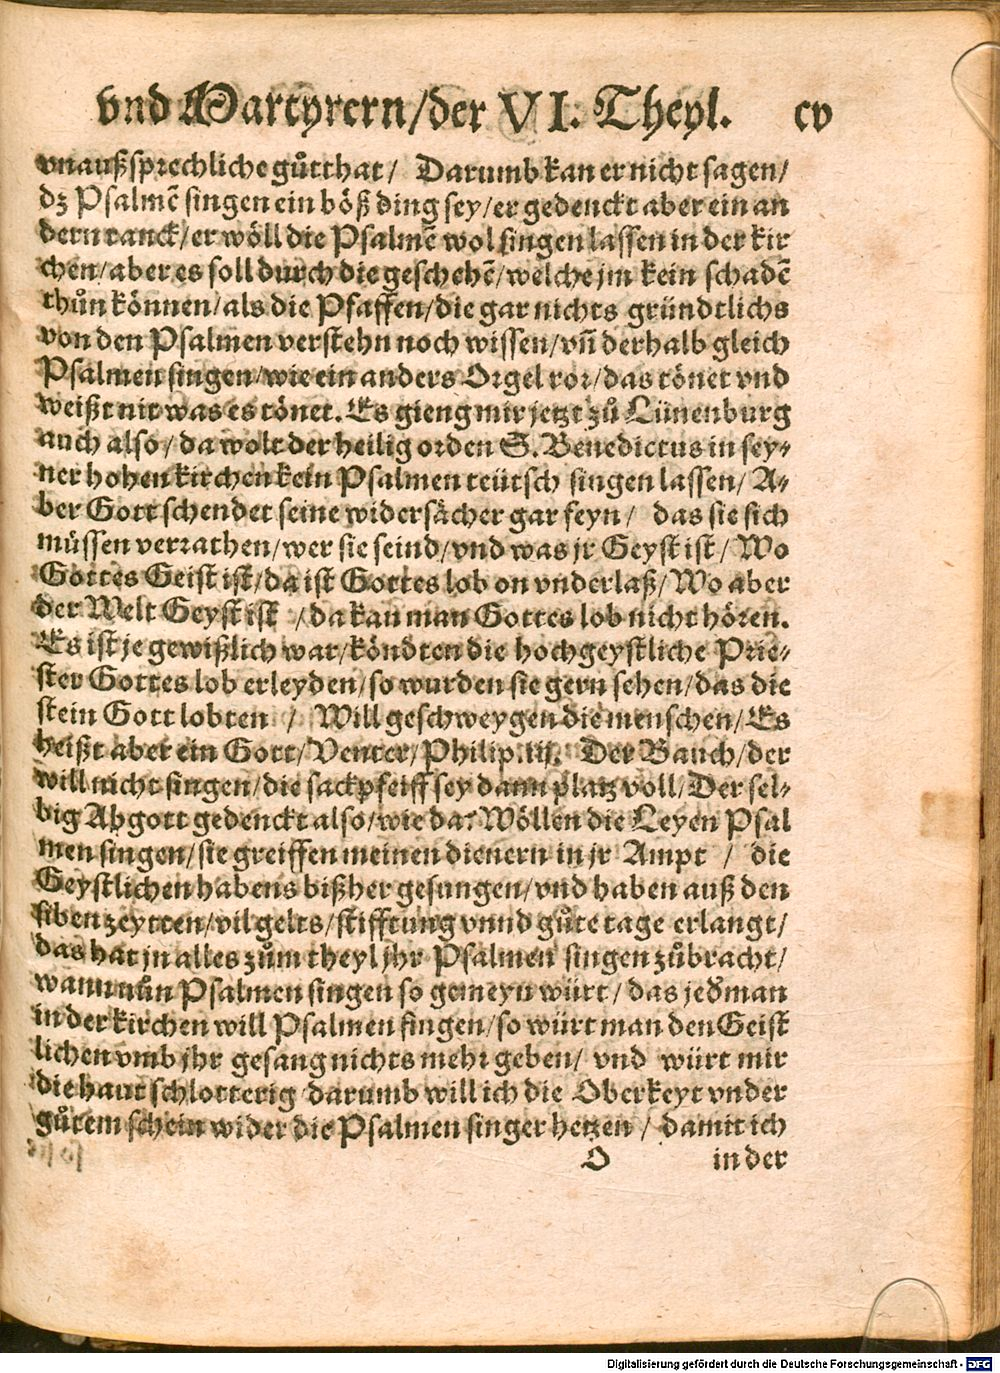 vnd Martyrern/der VI. Theyl. cv
vnaußsprechliche gůtthat/ Darumb kan er nicht sagen/
dz Psalmē singen ein böß ding sey/er gedenckt aber ein an
dern ranck/er wöll die Psalmē wol singen lassen in der kir
chen/aber es soll durch die geschehē/welche jm kein schadē
thůn können/als die Pfaffen/die gar nichts gründtlichs
von den Psalmen verstehn noch wissen/vñ derhalb gleich
Psalmen singen/wie ein anders Orgel ror/das tönet vnd
weißt nit was es tönet. Es gieng mir jetzt zů Lünenburg
auch also/da wolt der heilig orden S. Benedictus in sey⸗
ner hohen kirchen kein Psalmen teütsch singen lassen/A⸗
ber Gott schendet seine widersächer gar feyn/ das sie sich
müssen verrathen/wer sie seind/vnd was jr Geyst ist/Wo
Gottes Geist ist/da ist Gottes lob on vnderlaß/Wo aber
der Welt Geyst ist /da kan man Gottes lob nicht hören.
Es ist je gewißlich war/köndten die hochgeystliche Prie⸗
ster Gottes lob erleyden/so wurden sie gern sehen/das die
stein Gott lobten / Will geschweygen die menschen/Es
heißt aber ein Gott/Venter/Philip.iij. Der Bauch/der
will nicht singen/die sackpfeiff sey dann platz voll/Der sel⸗
big Abgott gedenckt also/wie da? Wöllen die Leyen Psal
men singen/sie greiffen meinen dienern in jr Ampt / die
Geystlichen habens bißher gesungen/vnd haben auß den
siben zeytten/vil gelts/stifftung vnnd gůte tage erlangt/
das hat jn alles zům theyl jhr Psalmen singen zůbracht/
wann nůn Psalmen singen so gemeyn würt/das jedꝰman
in der kirchen will Psalmen singen/so würt man den Geist
lichen vmb jhr gesang nichts mehr geben/ vnd würt mir
die haut schlotterig darumb will ich die Oberkeyt vnder
gůtem schein wider die Psalmen singer hetzen/ damit ich
O in der
Digitalisierung gefördert durch die Deutsche Forschungsgemeinschaft - DFG